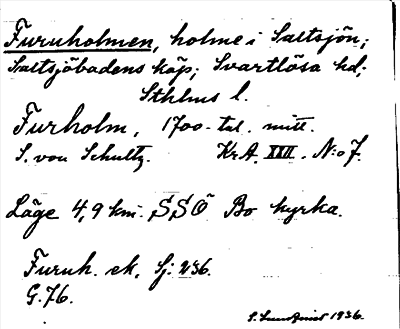 Furuholmen, holme i Saltsjön;
Saltsjöbadens köp; Svartlösa hd;
Sthlms l.
Furholm, 1700-tal. mitt.
S. von Schultz. KrA. XXII. N:o 7.
Läge 4,9 km. SSÖ Bo kyrka.
Furuh. ek. bl. 236.
G. 76.
S. Lundqvist 1936.